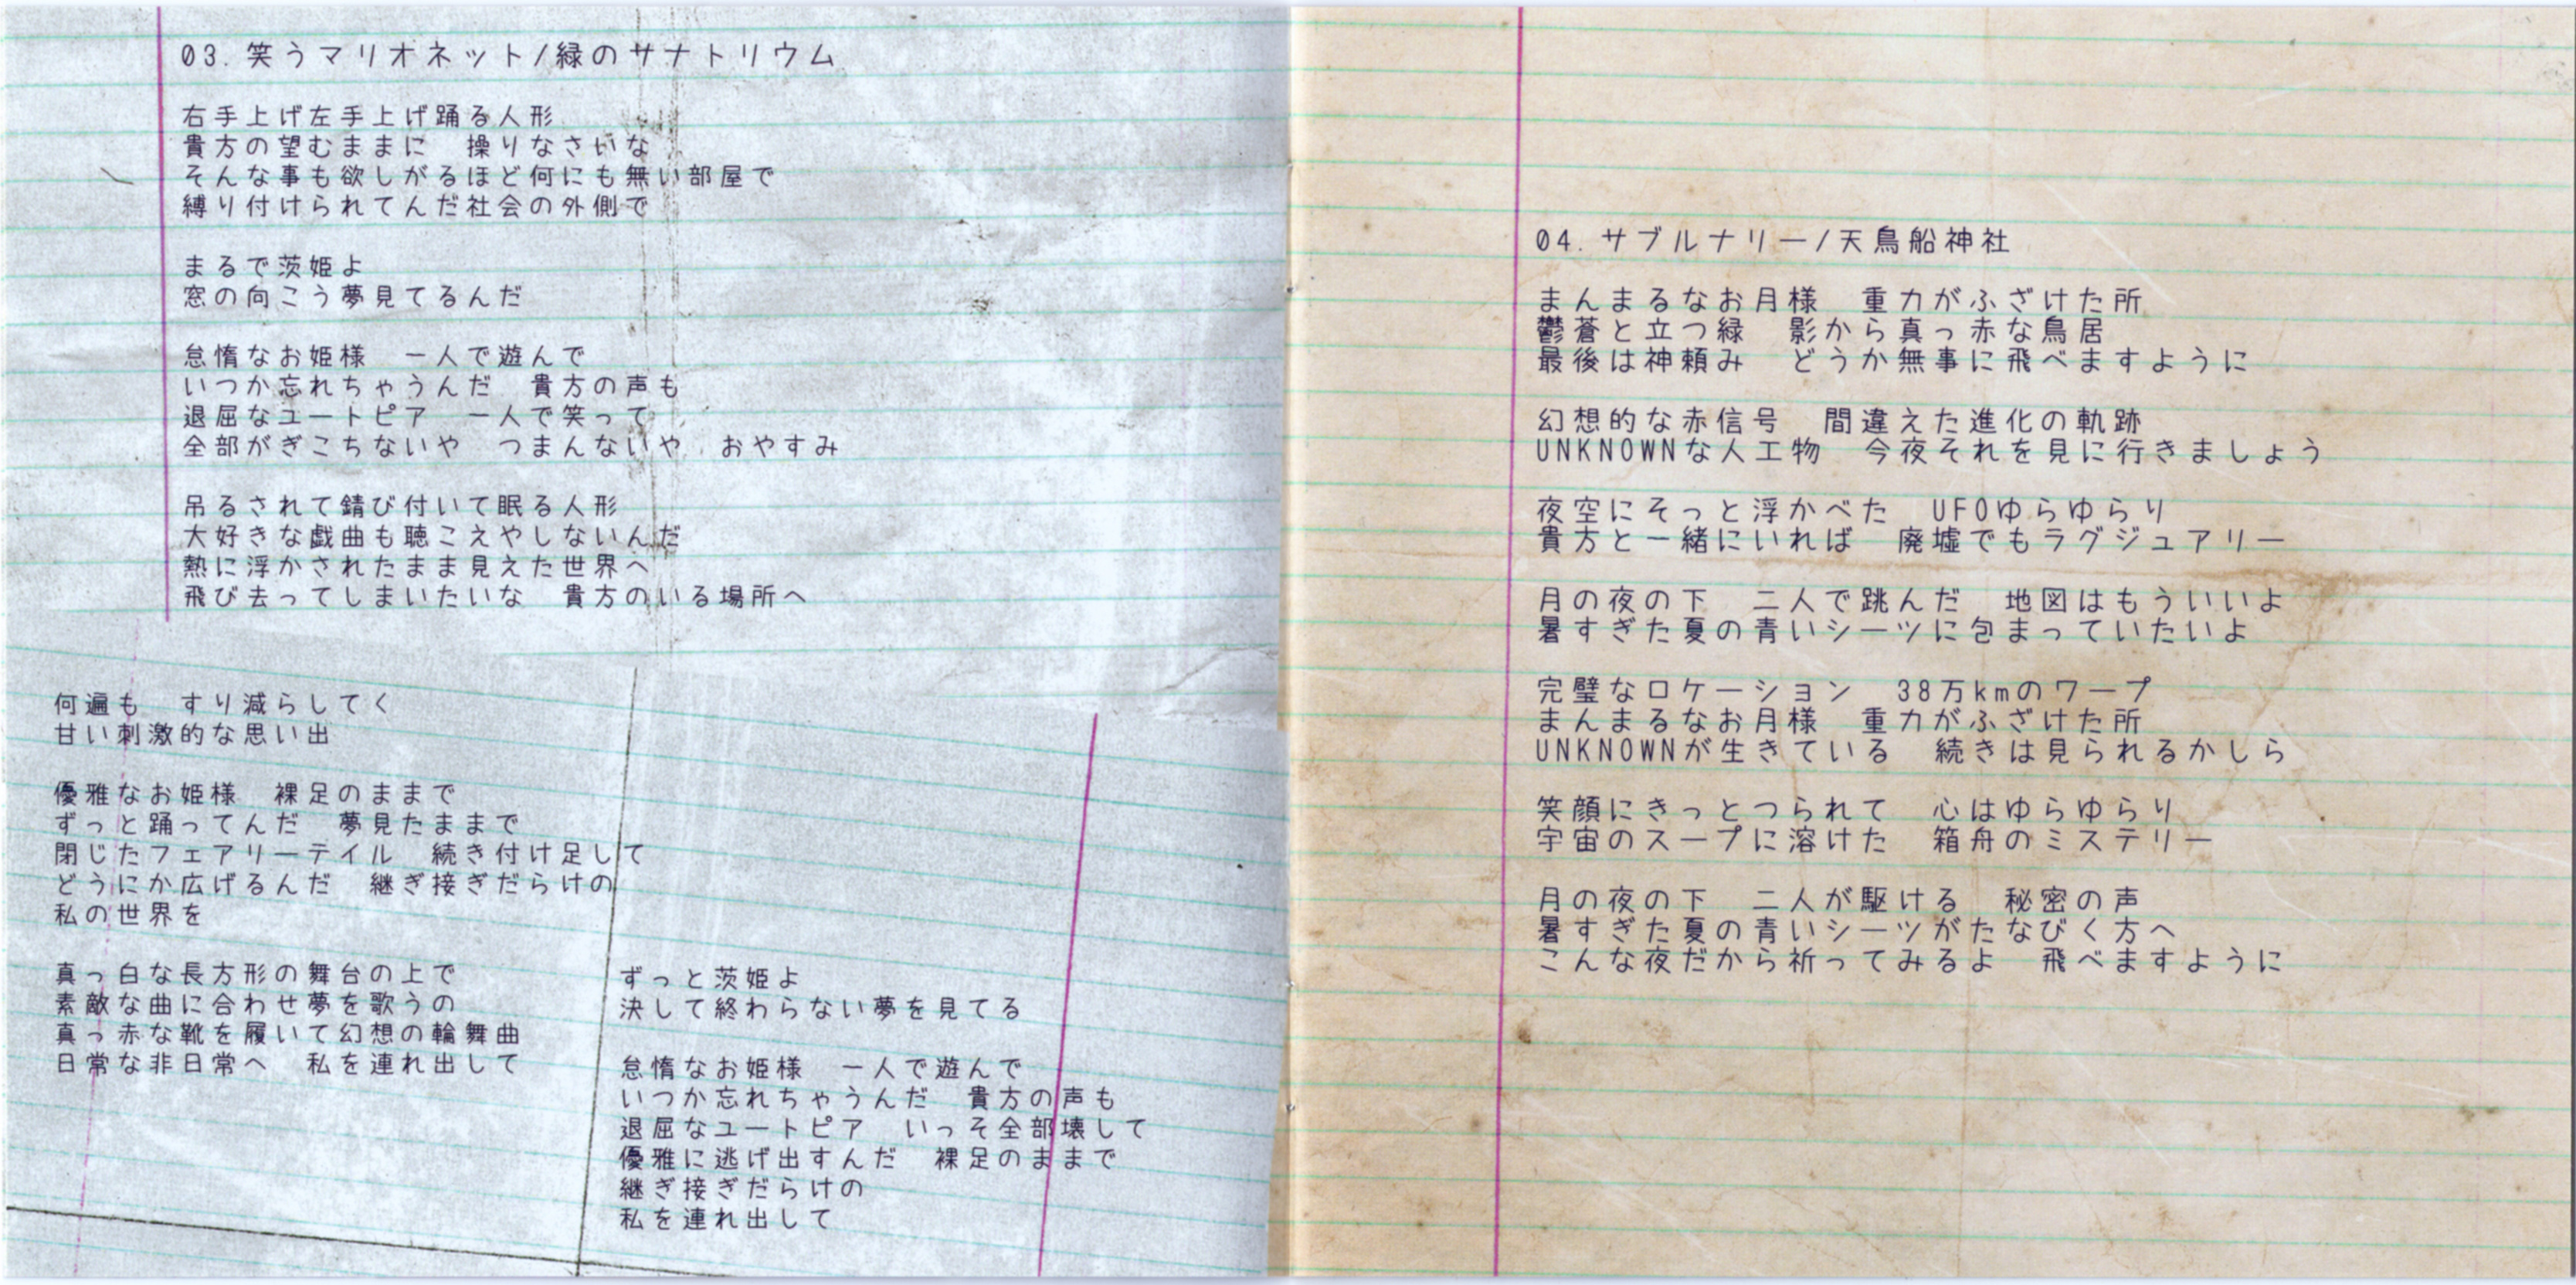 03.笑うマリオネット/緑のサナトリウム
右手上げ左手上げ踊る人形
貴方の望むままに　操りなさいな
そんな事も欲しがるほど何にも無い部屋で
縛り付けられてんだ社会の外側で
まるで茨姫よ
窓の向こう夢見てるんだ
怠惰なお姫様　一人で遊んで
いつか忘れちゃうんだ　貴方の声も
退屈なユートピア　一人で笑って
全部がぎこちないや　つまんないや　おやすみ
吊るされて錆び付いて眠る人形
大好きな戯曲も聴こえやしないんだ
熱に浮かされたまま見えた世界へ
飛び去ってしまいたいな　貴方のいる場所へ
何遍も　すり減らしてく
甘い刺激的な思い出
優雅なお姫様　裸足のままで
ずっと踊ってんだ　夢見たままで
閉じたフェアリーテイル　続き付け足して
どうにか広げるんだ　継ぎ接ぎだらけの
私の世界を
真っ白な長方形の舞台の上で
素敵な曲に合わせ夢を歌うの
真っ赤な靴を履いて幻想の輪舞曲
日常な非日常へ　私を連れ出して
ずっと茨姫よ
決して終わらない夢を見てる
怠惰なお姫様　一人で遊んで
いつか忘れちゃうんだ　貴方の声も
退屈なユートピア　いっそ全部壊して
優雅に逃げ出すんだ　裸足のままで
継ぎ接ぎだらけの
私を連れ出して
04.サブルナリー/天鳥船神社
まんまるなお月様　重力がふざけた所
鬱蒼と立つ緑　影から真っ赤な鳥居
最後は神頼み　どうか無事に飛べますように
幻想的な赤信号　間違えた進化の軌跡
UNKNOWNな人工物　今夜それを見に行きましょう
夜空にそっと浮かべた　UFOゆらゆらり
貴方と一緒にいれば　廃墟でもラグジュアリー
月の夜の下　二人で跳んだ　地図はもういいよ
暑すぎた夏の青いシーツに包まっていたいよ
完璧なロケーション　38万kmのワープ
まんまるなお月様　重力がふざけた所
UNKNOWNが生きている　続きは見られるかしら
笑顔にきっとつられて　心はゆらゆらり
宇宙のスープに溶けた　箱舟のミステリー
月の夜の下　二人が駆ける　秘密の声
暑すぎた夏の青いシーツがたなびく方へ
こんな夜だから祈ってみるよ　飛べますように